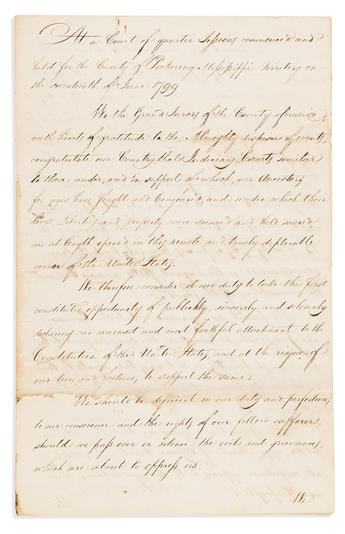 At a Court of quarter Sessions commenced and
held for the County of Pickering Mississippi Territory on
the seventeenth of June 1799
We the Grand Jurors of the County aforesaid,
with hearts of gratitude to the Almighty disposer of events,
congratulate our Country that Judiciary Courts similar
to those under, and in support of which, our Ancestors
for ages have fought and Conquered, and under which their
lives, Liberties, and property were secured and held sacred
are at length opened in this remote and truely deplorable
corner of the United States,
We therefore consider it our duty to take this first
constituted opportunity of publickly, sincerely, and solemnly
declaring our warmest and most faithful attachment to the
Constitution of the United States, and at the risque of
our lives and to support the same;
We should be deficient in our duty and perfidious
to our consciences and the rights of our fellow sufferers,
should we pass over in silence the evils and grievances,
which are about to oppress us.
We